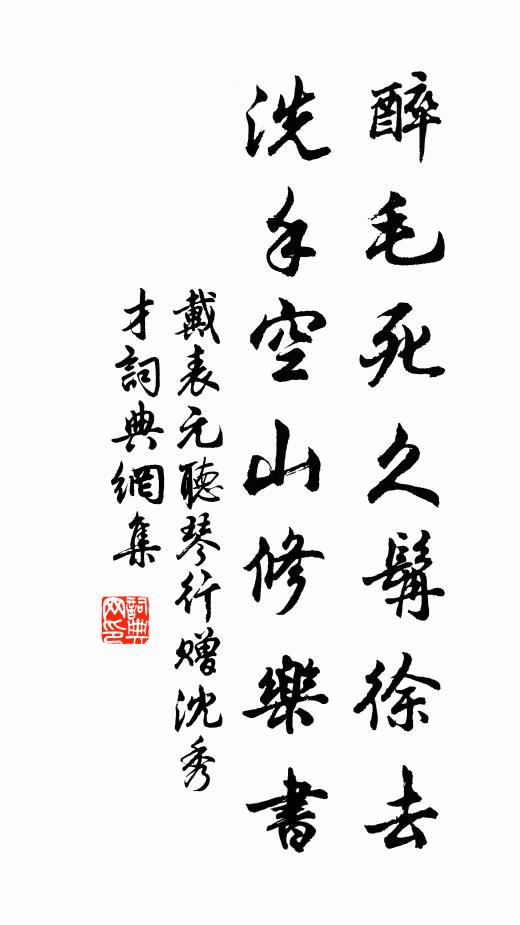 醉毛死久髯徐去
洗手空山修樂書
戴表元聽琴行贈沈秀
才詞典網集
詞典网印